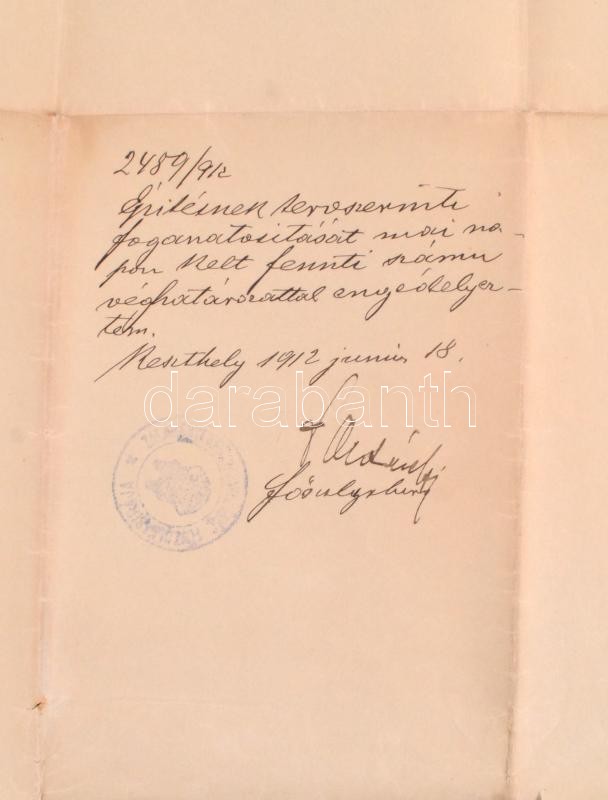 2489/912
Építésnek tervszerinti
foganatositását mai na-
pon kelt fennti számu
véghatározattal engedélyez-
tem.
Keszthely 1912 junius 18.
darabanth
főszolgabiró